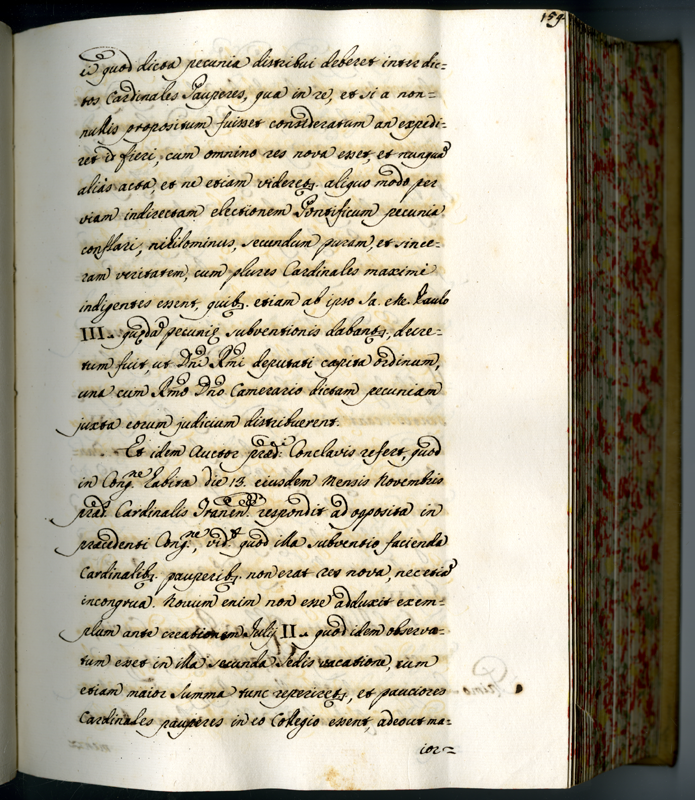 159
is quod dicta pecunia distribui deberet inter dic=
tos Cardinales Pauperes, qua in re, et si a non=
nullis propositum fuisset consideratum an expedi=
ret id fieri, cum omnino res nova esset, et nunquā
alias acta, et ne etiam videretʒ. aliquo modo per
viam indirectam electionem Pontificum pecunia
conflari, nihilominus, secundum puram, et since=
ram veritatem, cum plures Cardinales maximè
indigentes essent, quibʒ. etiam ab ipso Sa. Me. Paulo
III. quædā pecunię subventionis dabantʒ, decre=
tum fuit, ut Dn̄i Rm̄i deputati capita ordinum,
una cum Rm̄o Dn̄o Camerario dictam pecuniam
juxta eorum judicium distribuerent.
Et idem Auctor præd.i Conclavis refert, quod
in Cong.ne habita die 13. eiusdem Mensis Novembris
præd. Cardinalis respondit ad opposita in
præcedenti Cong.ne, vid.t quod illa subventio facienda
Cardinalibʒ. pauperibʒ. non erat res nova, nec etiā
incongrua. Novum enim non esse adduxit exem=
plum ante creationem Julij II. quod idem observa=
tum esset in illa secunda Sedis vacatione, tum
etiam maior summa tunc reperiretʒ, et pauciores
Cardinales pauperes in eo Collegio essent, adeout ma=
ior=